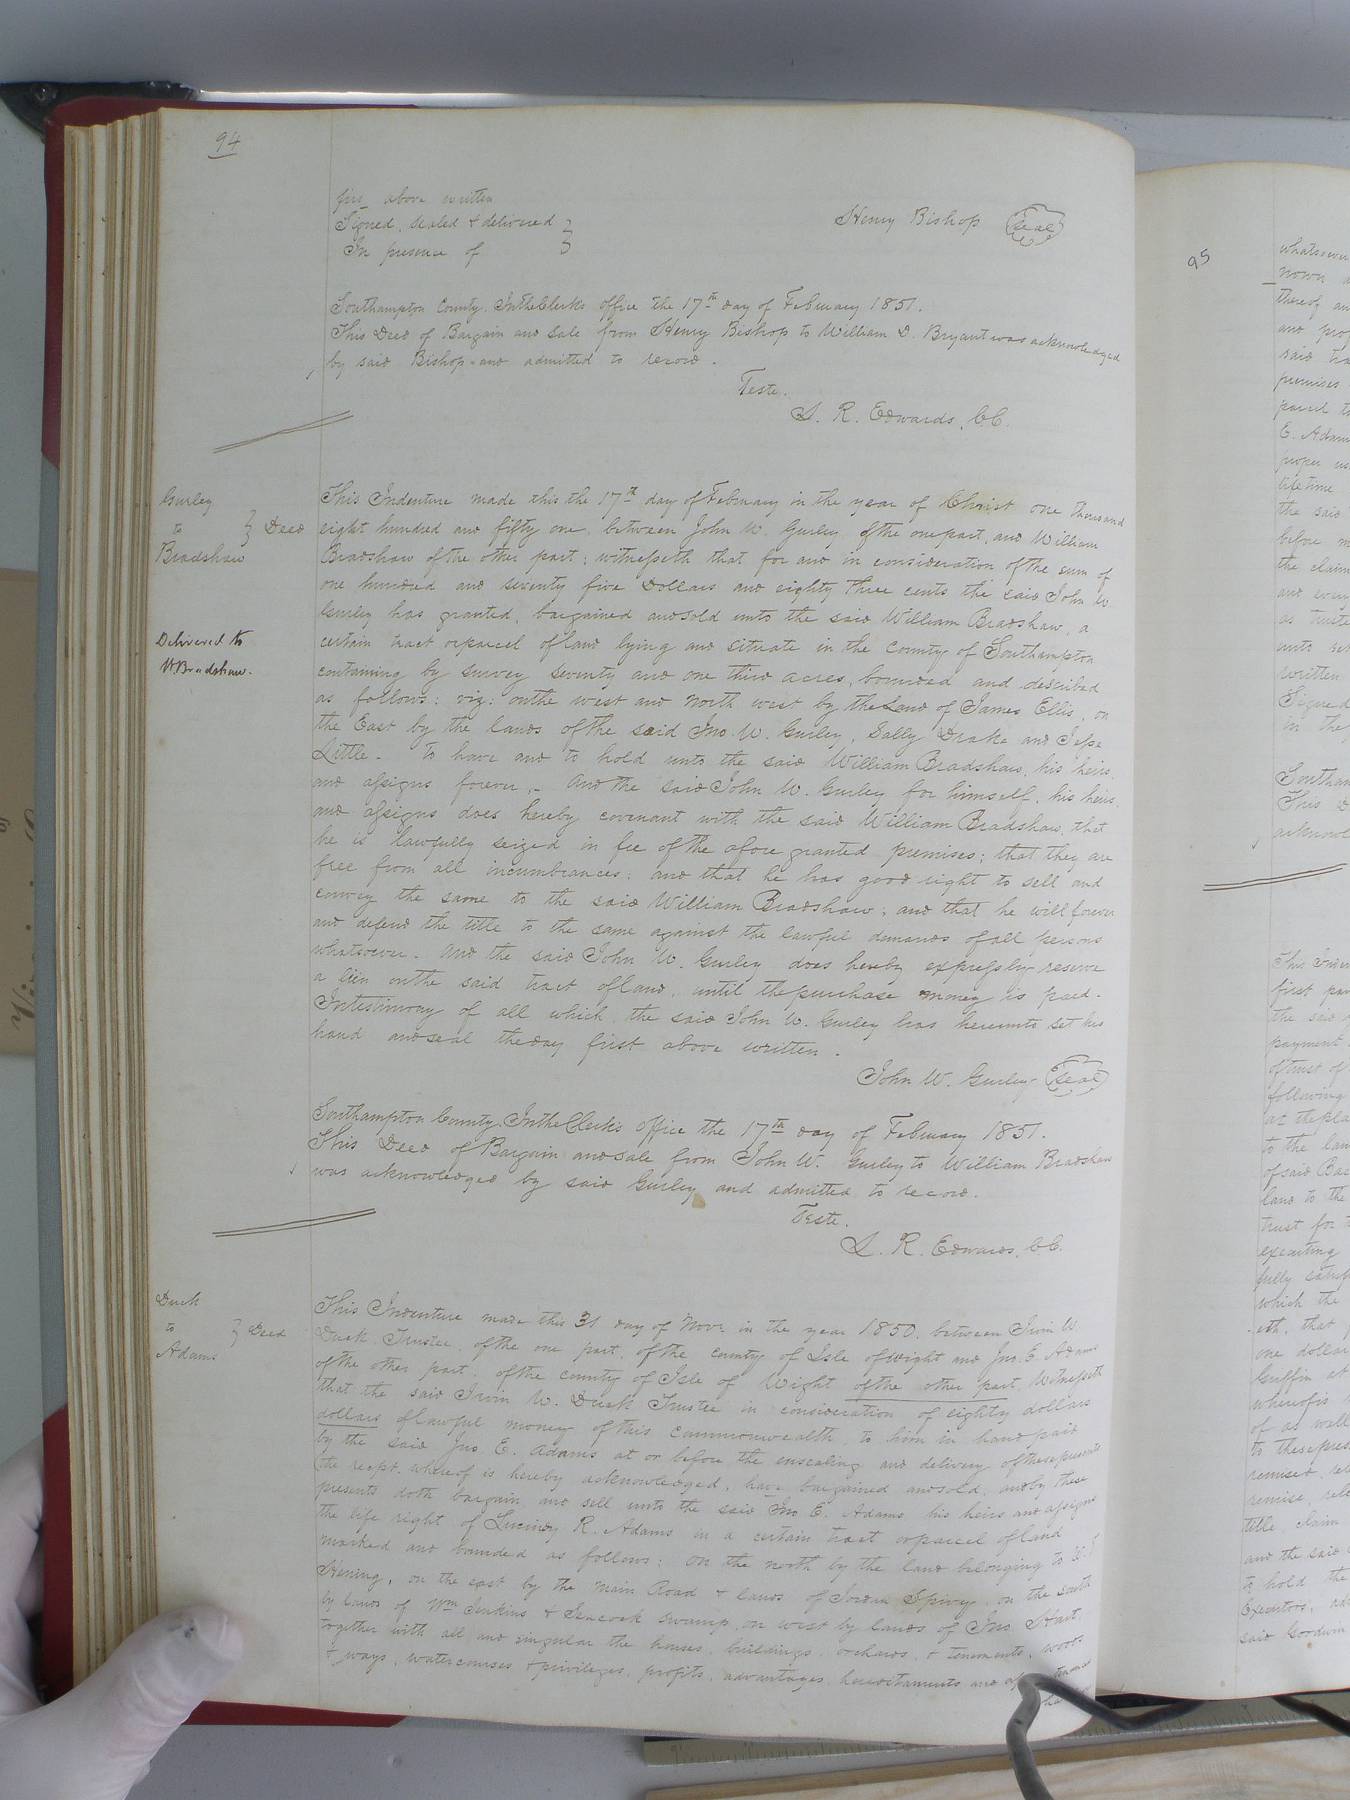 94
first above written
Signed, sealed & delivered }
In presence of }
Henry Bishop (Seal)
Southampton County. In the Clerks office the 17th day of February 1851.
This Deed of Bargain and Sale from Henry Bishop to William D. Bryant was acknowledged
by said Bishop and admitted to record.
Teste.
L. R. Edwards, C.C.
Gurley
to } Deed
Bradshaw
Delivered to
W Bradshaw.
This Indenture made this the 17th day of February in the year of Christ one thousand
eight hundred and fifty one, between John W. Gurley of the one part, and William
Bradshaw of the other part; witnesseth that for and in consideration of the sum of
one hundred and seventy five Dollars and eighty three cents the said John W
Gurley has granted, bargained and sold unto the said William Bradshaw, a
certain tract or parcel of land lying and situate in the County of Southampton
containing by survey seventy and one third acres, bounded and described
as follows: viz: on the west and North west by the Land of James Ellis, on
the East by the lands of the said Jno. W. Gurley, Sally Drake and Jesse
Little - to have and to hold unto the said William Bradshaw, his heirs
and assigns forever. - And the said John W. Gurley for himself, his heirs,
and assigns does hereby covenant with the said William Bradshaw, that
he is lawfully seized in fee of the afore granted premises; that they are
free from all incumbrances: and that he has good right to sell and
convey the same to the said William Bradshaw; and that he will forever
and defend the title to the same against the lawful demands of all persons
whatsoever. And the said John W. Gurley does hereby expressly reserve
a lien on the said tract of land, until the purchase money is paid.
In testimony of all which, the said John W. Gurley has hereunto set his
hand and seal the day first above written.
John W. Gurley (Seal)
Southampton County. In the Clerk's Office the 17th day of February 1851.
This Deed of Bargain and sale from John W. Gurley to William Bradshaw
was acknowledged by said Gurley and admitted to record.
Teste.
L. R. Edwards, C.C.
Duck
to } Deed
Adams
This Indenture made this 31 day of Novr in the year 1850, between Irvin W
Duck Trustee, of the one part, of the county of Isle of Wight and Jno. E. Adams
of the other part, of the county of Isle of Wight of the other part, Witnesseth
that the said Irvin W. Duck Trustee in consideration of eighty dollars
dollars of lawful money of this commonwealth, to him in hand paid
by the said Jno E. Adams at or before the ensealing and delivery of these presents
(the recpt. whereof is hereby acknowledged, have bargained and sold, and by these
presents doth bargain and sell unto the said Jno E. Adams his heirs and assigns
the life right of Lucindy R. Adams in a certain tract or parcel of land
marked and bounded as follows: On the north by the land belonging to
on the east by the main Road & lands of Jordan Spivy, on the south
by lands of Wm Jenkins & Seacock swamp, on west by lands of Jno Hart
together with all and singular the houses, buildings, orchards, & tenements, woods
& ways, watercourses & privileges, profits, advantages, hereditaments and
95
whatsoever
thereof an
said tra
premises
parcel to
E. Adam
proper us
life time
the said
before m
the claim
and every
unto set
written
Signed
in the
Southam
This D
acknowl
This Inden
first par
the said
payment
of trust of
following
at the pla
to the lan
of said
land to the
trust for t
executing
fully satisf
which the
eth, that
one dollar
whereof is
of as well
to these pres
remise, rele
title, claim
and the said
to hold the
Executors, ad
said Goodwin